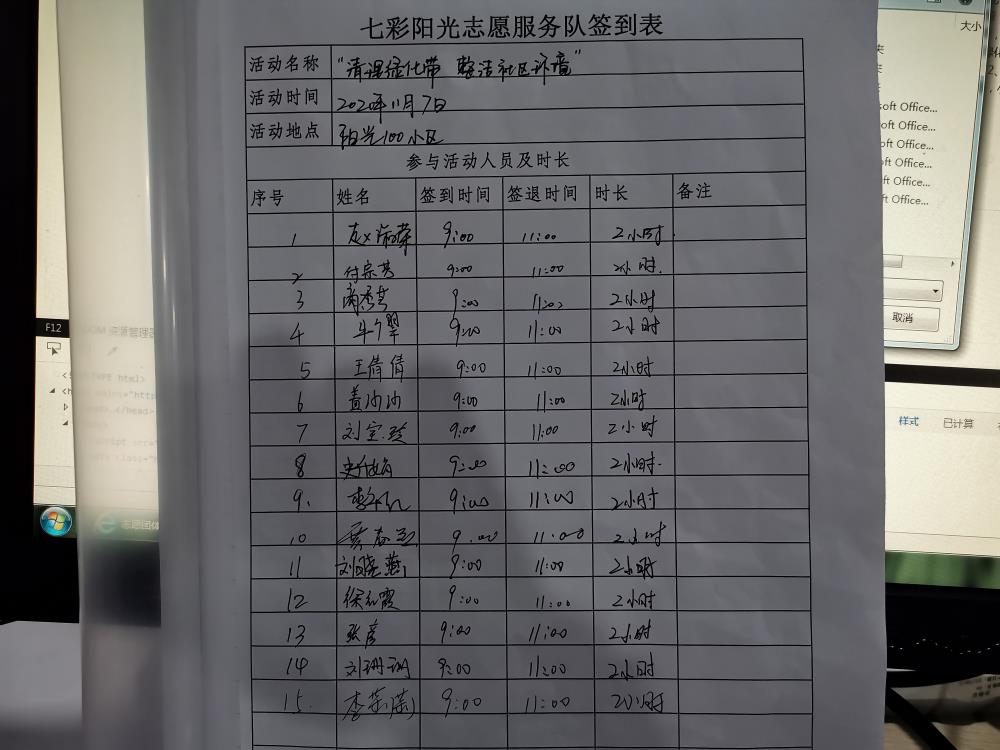 七彩阳光志愿服务队签到表
活动名称 "清理绿化带 整洁社区环境"
活动时间 2020年11月7日
活动地点 阳光100小区
参与活动人员及时长
序号 姓名 签到时间 签退时间 时长 备注
1 9:00 11:00 2小时
2 付宗芳 9:00 11:00 2小时
3 9:00 11:00 2小时
4 9:00 11:00 2小时
5 王倩倩 9:00 11:00 2小时
6 黄沙沙 9:00 11:00 2小时
7 刘宝玲 9:00 11:00 2小时
8 9:00 11:00 2小时
9. 9:00 11:00 2小时
10 9:00 11:00 2小时
11 刘晓燕 9:00 11:00 2小时
12 徐红霞 9:00 11:00 2小时
13 张彦 9:00 11:00 2小时
14 刘珊珊 9:00 11:00 2小时
15. 9:00 11:00 2小时
大小
soft Office...
soft Office...
soft Office...
oft Office...
ft Office...
t Office...
取消
样式 已计算
F12
资源管理器
志愿团体